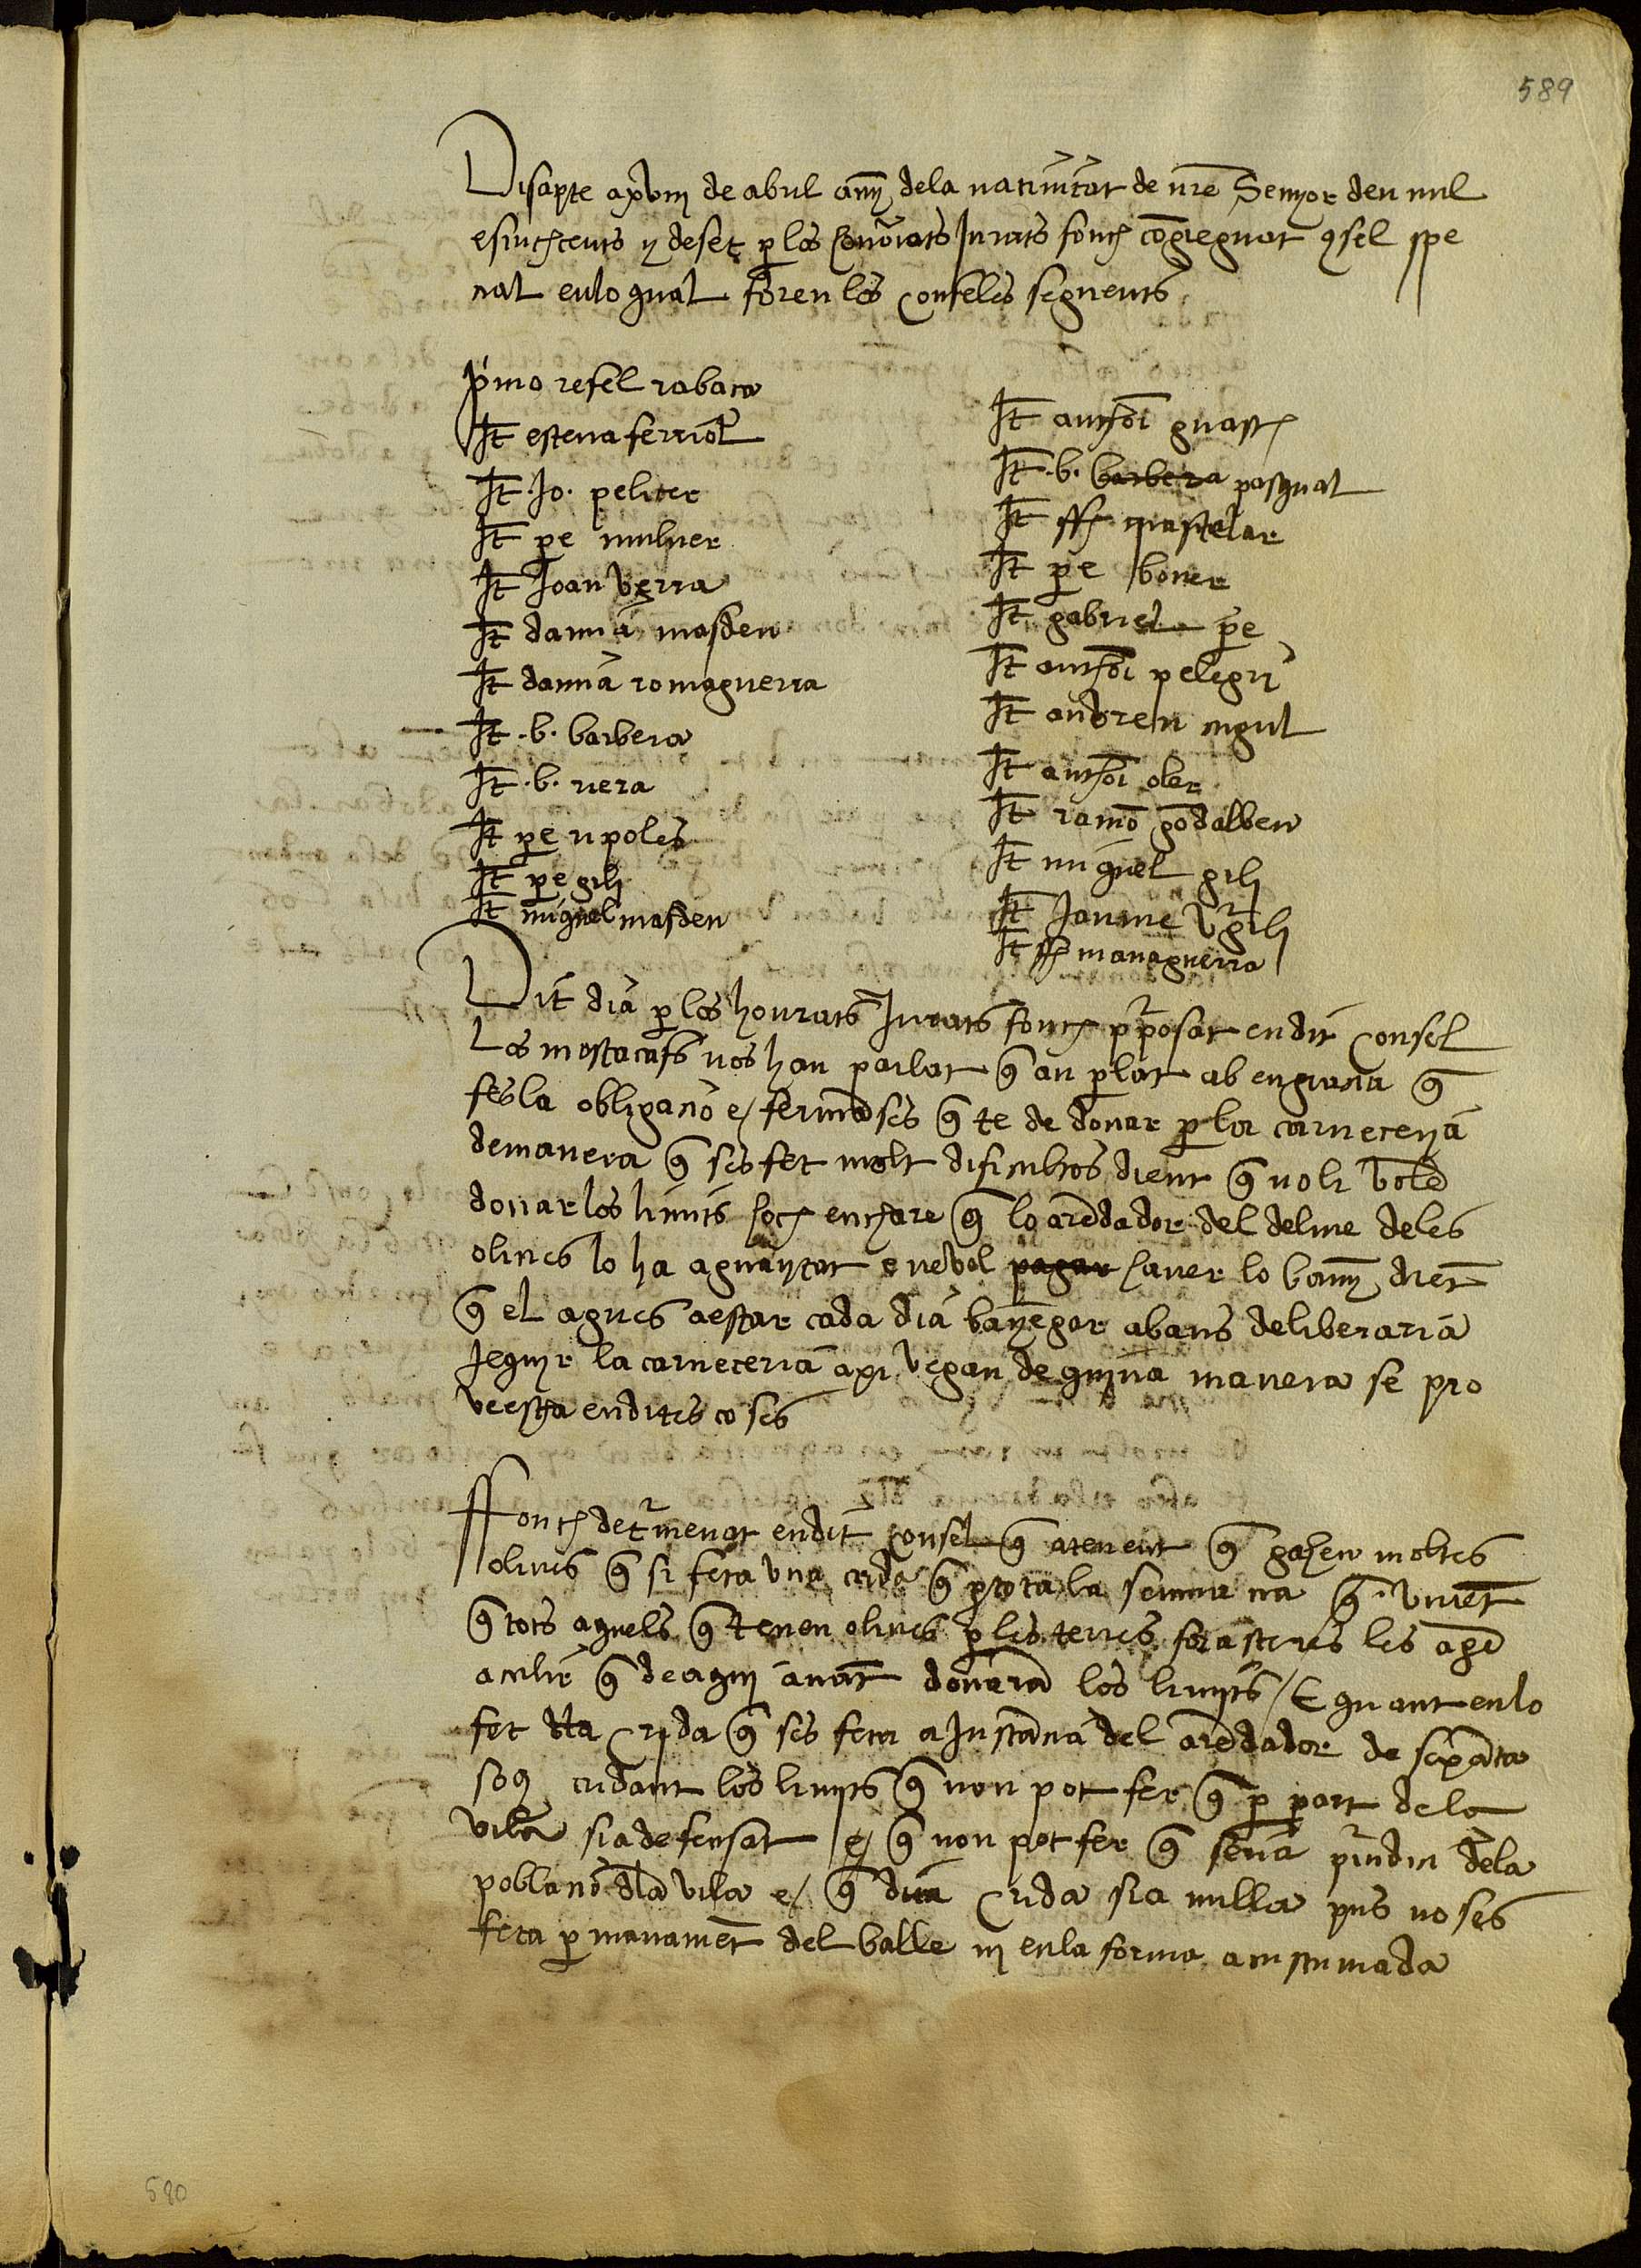 589
Disapte a xviii de abril any dela nativitat de nre Senyor deu mil
e sinchcents y deset per los honorats Jurats fonch congreguat consel spe
cial en lo qual foren los conseles seguents
Primo refel rabaca
It esteva ferriol
It Jo. peliser
It pere muluer
It Joan verra
It damia masdeu
It damia romaguerra
It .b. barbera
It .b. vera
It pere upoles
It pere gili
It miquel masdeu
It anthoni guasch
It .b. barbera pasqual
It ff mastelar
It pere boner
It gabriel pere
It anthoni pelegri
It andreu mgul
It anthoni oler
It ramo godalbeu
It miquel gili
It Jaume Vr gili
It ff managuerra
Dit dia per los honrats Jurats fonch proposat en dit Consel
Los mostacafs nos han parlat que an perlat ab engracia que
fes la obligacio e fermanses que te de donar per la carneceria
de manera que ses fet molt dificultos dient que noli volen
donar los limits hoch enchare que lo arendador del delme deles
olives lo ha aguaytat e ne vol pagar haver lo bany dient
que el agues a estar cada dia banyegar abans deliberaria
Jequir la carneceria axi vegan de quina manera se pro
veescha en dites coses
Ffonch determenat en dit Consel que atenent que gahen moltes
olives que si feta una crida que per tota la semmana que vinent
que tots aquels que tenen olives per les terres forasteres les agen
a culir que de aqui avant donaran los limits / E quant en lo
fet dta Crida que ses feta a Instancia del arendador de sixanta
sos cridant los limits que non pot fer que per part dela
vila sia defensat e que non pot fer que seria prejudici dela
poblacio dla vila e que dita Crida sia nulla pus no ses
feta per manament del balle ni en la forma acustumada
580